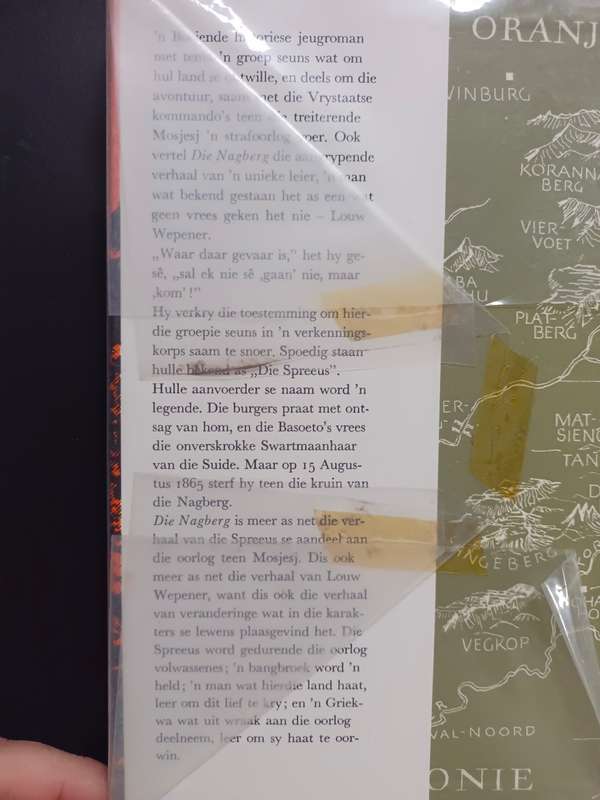 'n Boeiende historiese jeugroman
met 'n groep seuns wat om
hul land se ontwille, en deels om die
avontuur, saam met die Vrystaatse
kommando's teen die treiterende
Mosjesj 'n strafoorlog voer. Ook
vertel Die Nagberg die aangrypende
verhaal van 'n unieke leier, 'n man
wat bekend gestaan het as een wat
geen vrees geken het nie – Louw
Wepener.
„Waar daar gevaar is,” het hy ge-
sê, „sal ek nie sê ‚gaan’ nie, maar
‚kom’!”
Hy verkry die toestemming om hier-
die groepie seuns in 'n verkennings-
korps saam te snoer. Spoedig staan
hulle bekend as „Die Spreeus”.
Hulle aanvoerder se naam word 'n
legende. Die burgers praat met ont-
sag van hom, en die Basoeto's vrees
die onverskrokke Swartmaanhaar
van die Suide. Maar op 15 Augus-
tus 1865 sterf hy teen die kruin van
die Nagberg.
Die Nagberg is meer as net die ver-
haal van die Spreeus se aandeel aan
die oorlog teen Mosjesj. Dis ook
meer as net die verhaal van Louw
Wepener, want dis ook die verhaal
van veranderinge wat in die karak-
ters se lewens plaasgevind het. Die
Spreeus word gedurende die oorlog
volwassenes; 'n bangbroek word 'n
held; 'n man wat hierdie land haat,
leer om dit lief te kry; en 'n Griek-
wa wat uit wraak aan die oorlog
deelneem, leer om sy haat te oor-
win.
ORANJ
WINBURG
KORANNA
BERG
VIER-
VOET
BA
HU
PLAT-
BERG
ER-
MAT-
SIENG
TAN
D
NGEBERG
HA
VEGKOP
R
VAL-NOORD
ONIE